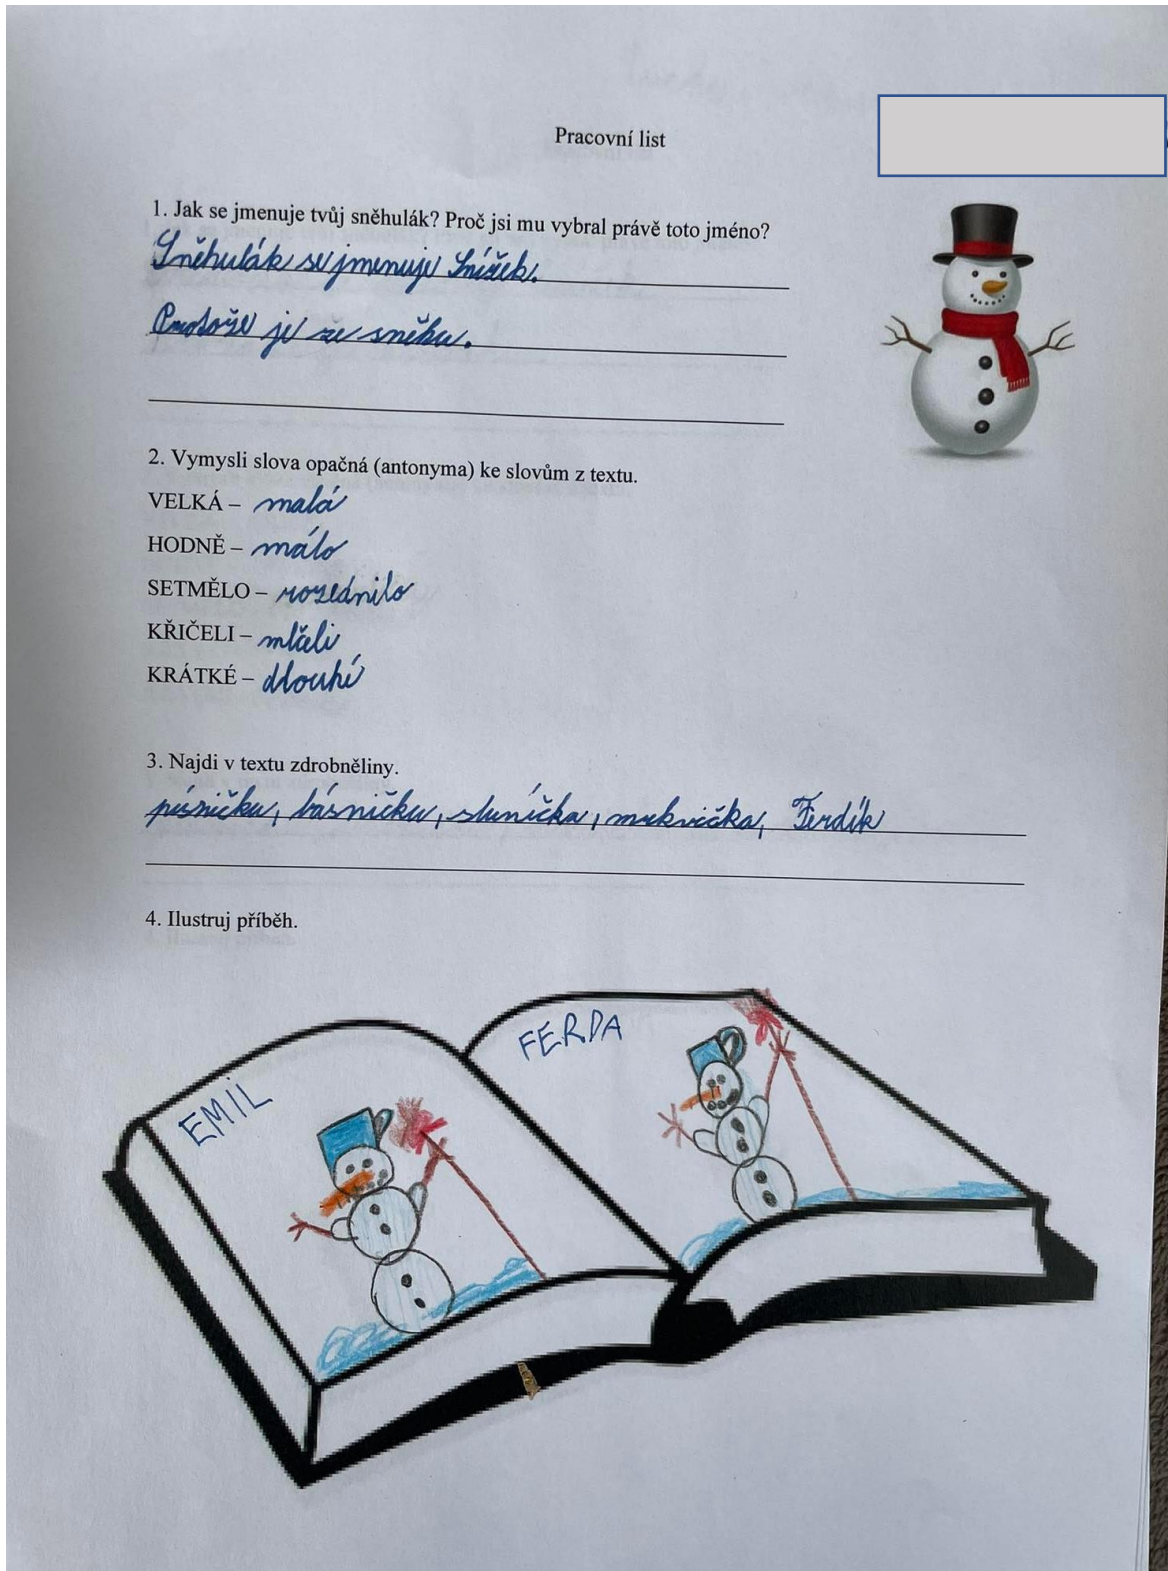 Pracovní list
1. Jak se jmenuje tvůj sněhulák? Proč jsi mu vybral právě toto jméno?
Sněhulák se jmenuje Snížek.
Protože je ze sněhu.
2. Vymysli slova opačná (antonyma) ke slovům z textu.
VELKÁ – malá
HODNĚ – málo
SETMĚLO – rozednilo
KŘIČELI – mlčeli
KRÁTKÉ – dlouhé
3. Najdi v textu zdrobněliny.
písničku, básničku, sluníčka, mrkvička, Ferdík
4. Ilustruj příběh.
EMIL
FERDA